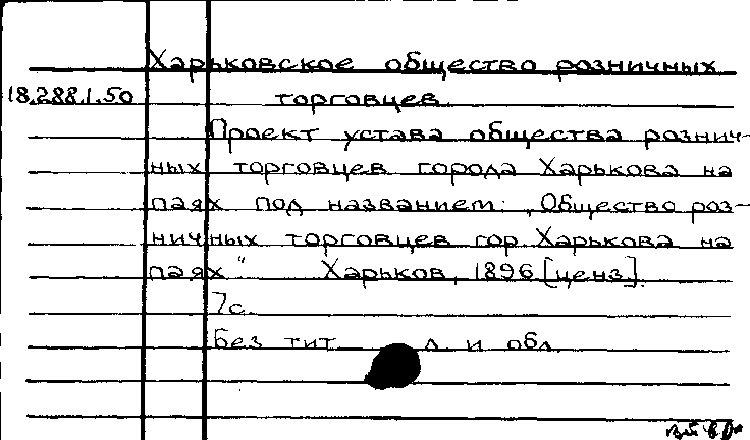 Харьковское общество розничных
18.288.1.50 торговцев.
Проект устава общества рознич-
ных торговцев города Харькова на
паях под названием: „Общество роз-
ничных торговцев гор. Харькова на
паях" Харьков, 1896 [ценз].
7с.
Без тит. л. и обл.